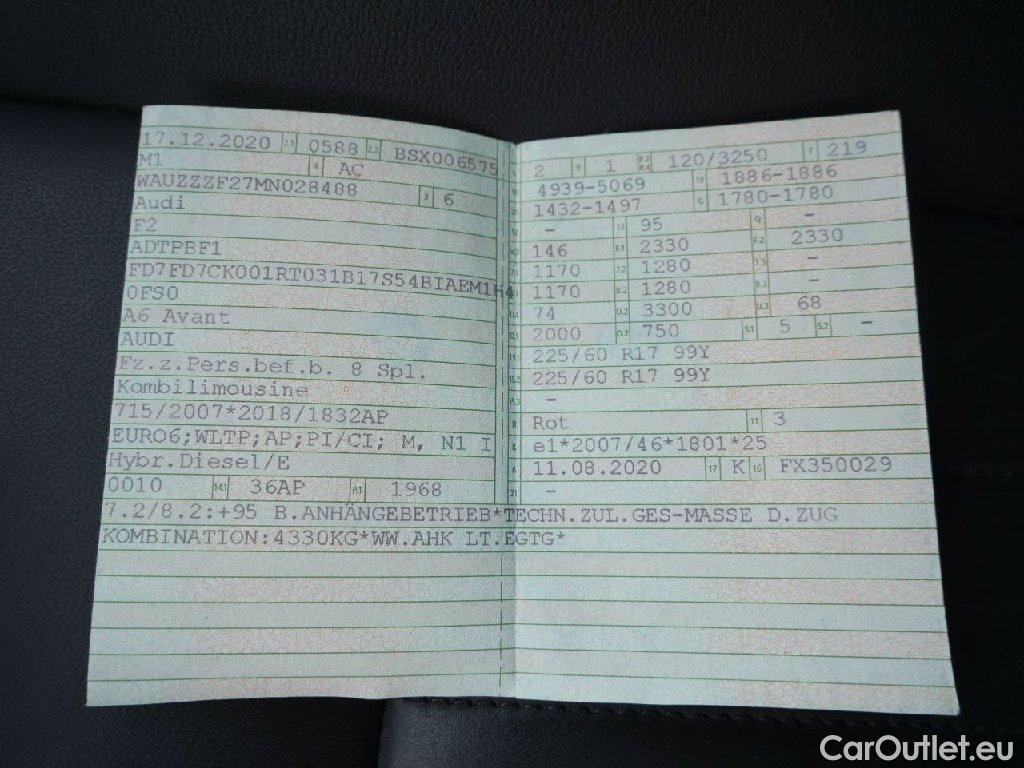 17.12.2020 2.1 0588 2.2 BSX006575
M1 4 AC
WAUZZZF27MN028488 3 6
Audi
F2
ADTPBF1
FD7FD7CK001RT031B17S54BIAEM1H4
0FS0
A6 Avant
AUDI
Fz.z.Pers.bef.b. 8 Spl.
Kombilimousine
715/2007*2018/1832AP
EURO6;WLTP;AP;PI/CI; M, N1 I
Hybr.Diesel/E
0010 14.1 36AP P.1 1968
L 2 9 1 P.2 P.4 120/3250 T 219
18 4939-5069 19 1886-1886
20 1432-1497 G 1780-1780
12 - 13 95 Q -
V.7 146 F.1 2330 F.2 2330
7.1 1170 7.2 1280 7.3 -
8.1 1170 8.2 1280 8.3 -
U.1 74 U.2 3300 U.3 68
O.1 2000 O.2 750 S.1 5 S.2 -
15.1 225/60 R17 99Y
15.2 225/60 R17 99Y
15.3 -
R Rot 11 3
K e1*2007/46*1801*25
6 11.08.2020 17 K 16 FX350029
21 -
7.2/8.2:+95 B.ANHÄNGEBETRIEB*TECHN.ZUL.GES-MASSE D.ZUG
KOMBINATION:4330KG*WW.AHK LT.EGTG*
CarOutlet.eu